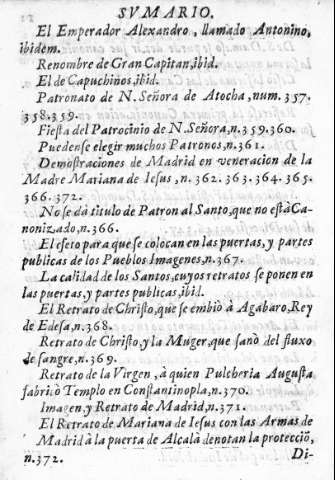 SVMARIO.
El Emperador Alexandro, llamado Antonino,
ibidem.
Renombre de Gran Capitan, ibid.
El de Capuchinos, ibid.
Patronato de N. Señora de Atocha, num. 357.
358.359.
Fiesta del Patrocinio de N. Señora, n. 359.360.
Puedense elegir muchos Patronos, n. 361.
Demostraciones de Madrid en veneracion de la
Madre Mariana de Iesus, n. 362. 363. 364. 365.
366.372.
No se dà titulo de Patron al Santo, que no està Ca-
nonizado, n. 366.
El efeto para que se colocan en las puertas, y partes
publicas de los Pueblos Imagenes, n. 367.
La calidad de los Santos, cuyos retratos se ponen en
las puertas, y partes publicas, ibid.
El Retrato de Christo, que se embiò à Agabaro, Rey
de Edesa, n. 368.
Retrato de Christo, y la Muger, que sanò del fluxo
de sangre, n. 369.
Retrato de la Virgen, à quien Pulcheria Augusta
fabricò Templo en Constantinopla, n. 370.
Imagen, y Retrato de Madrid, n. 371.
El Retrato de Mariana de Iesus con las Armas de
Madrid à la puerta de Alcalà denotan la protecciõ,
n. 372. Di-